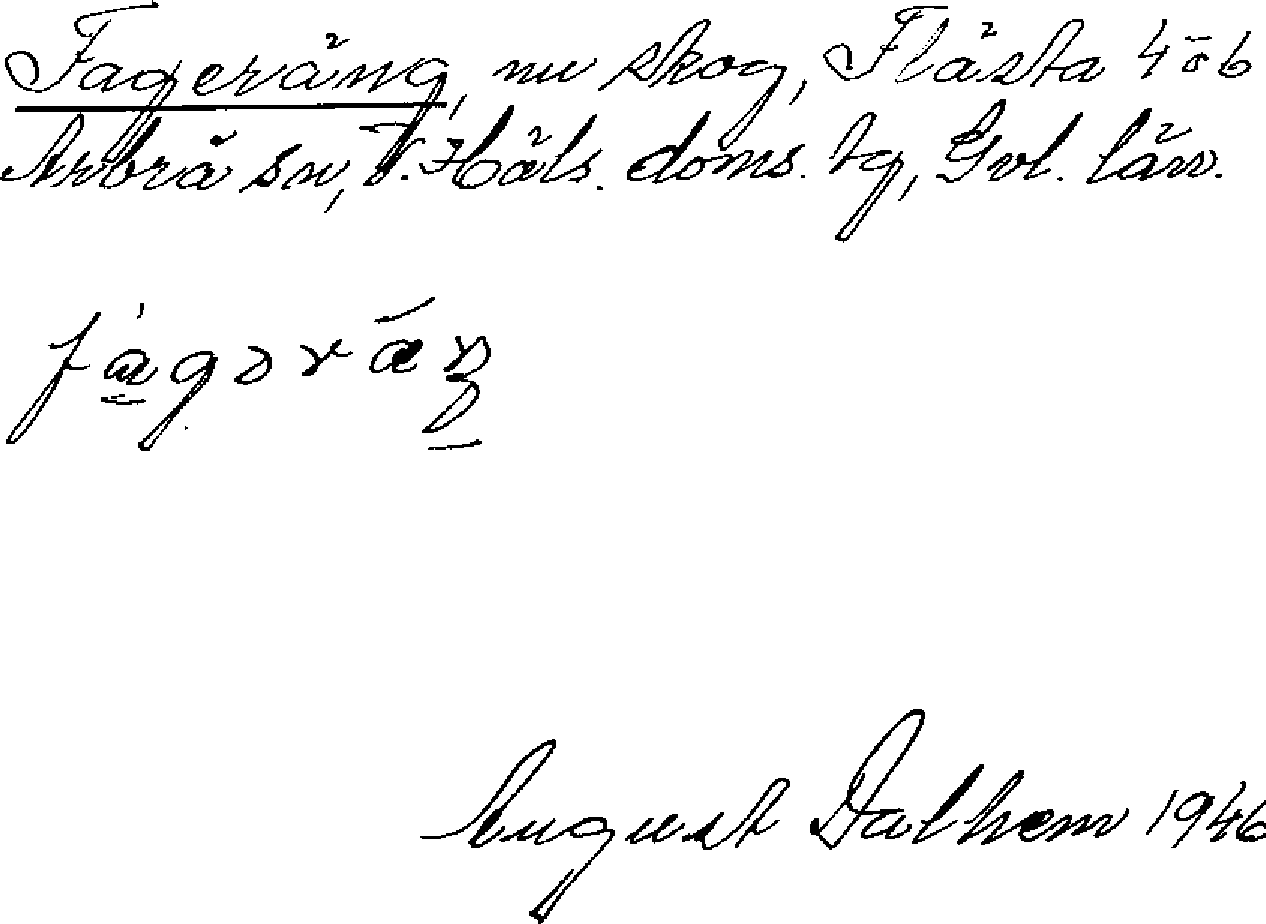 Fageräng, nu skog, Flästa 4 o 6
Arbrå sn, V. Häls. doms. tg, Gvl. län.
August Dalhem 1946